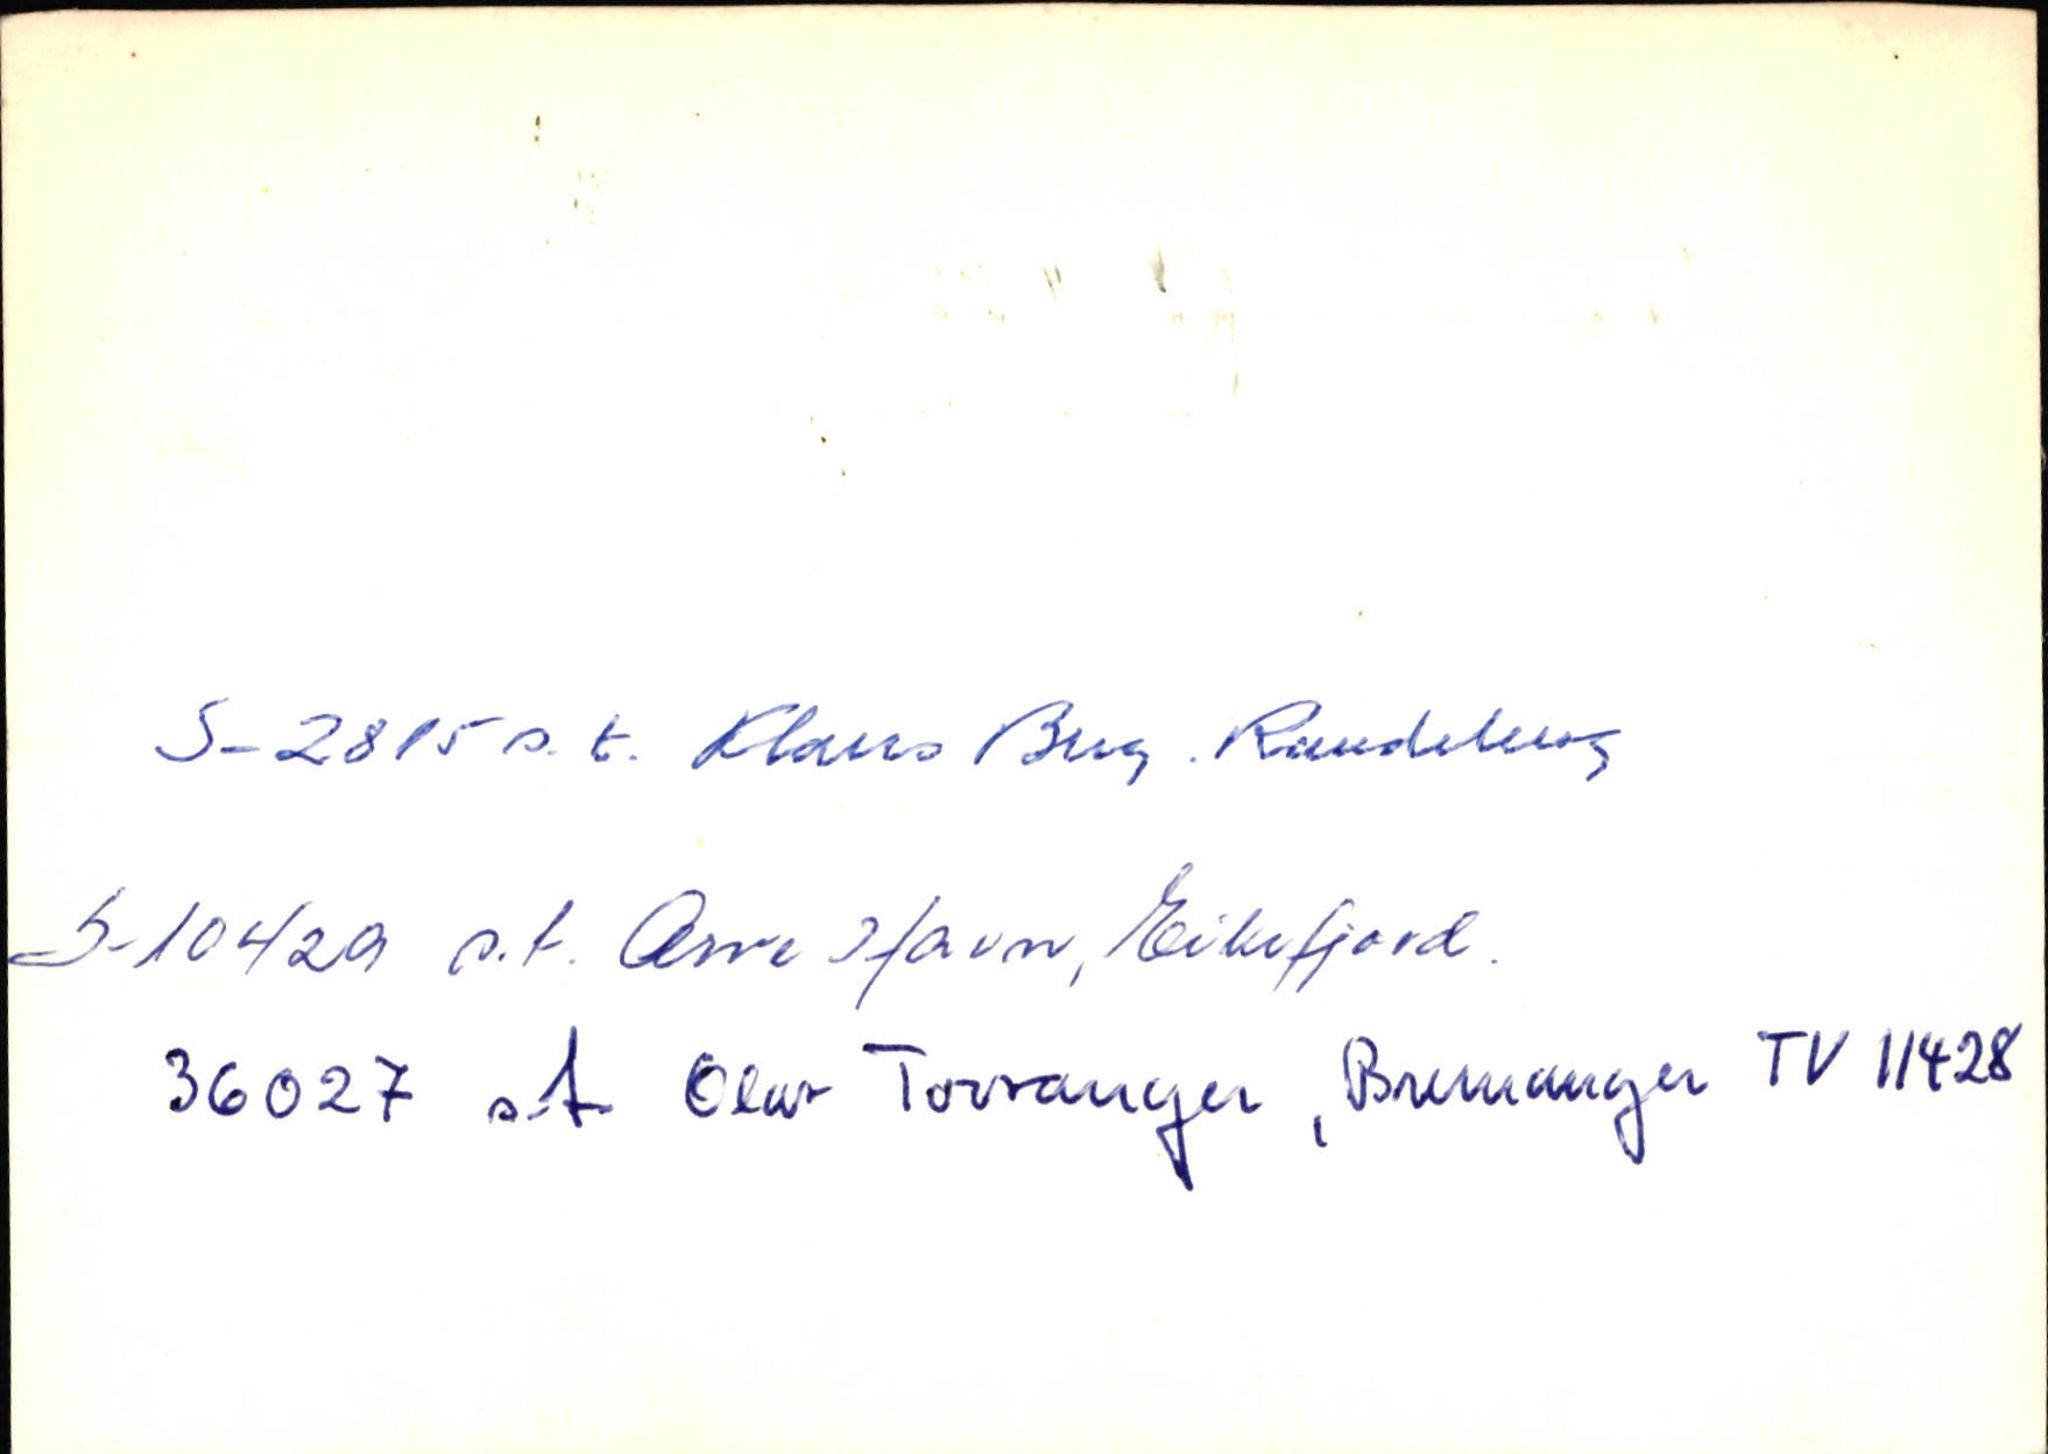 S-2815 s.t. Klaus Berg. Raudeberg
S-10429 s.t. Arne Stavn, Eikefjord.
36027 s.t. Olav Torvanger, Bremanger TV 11428